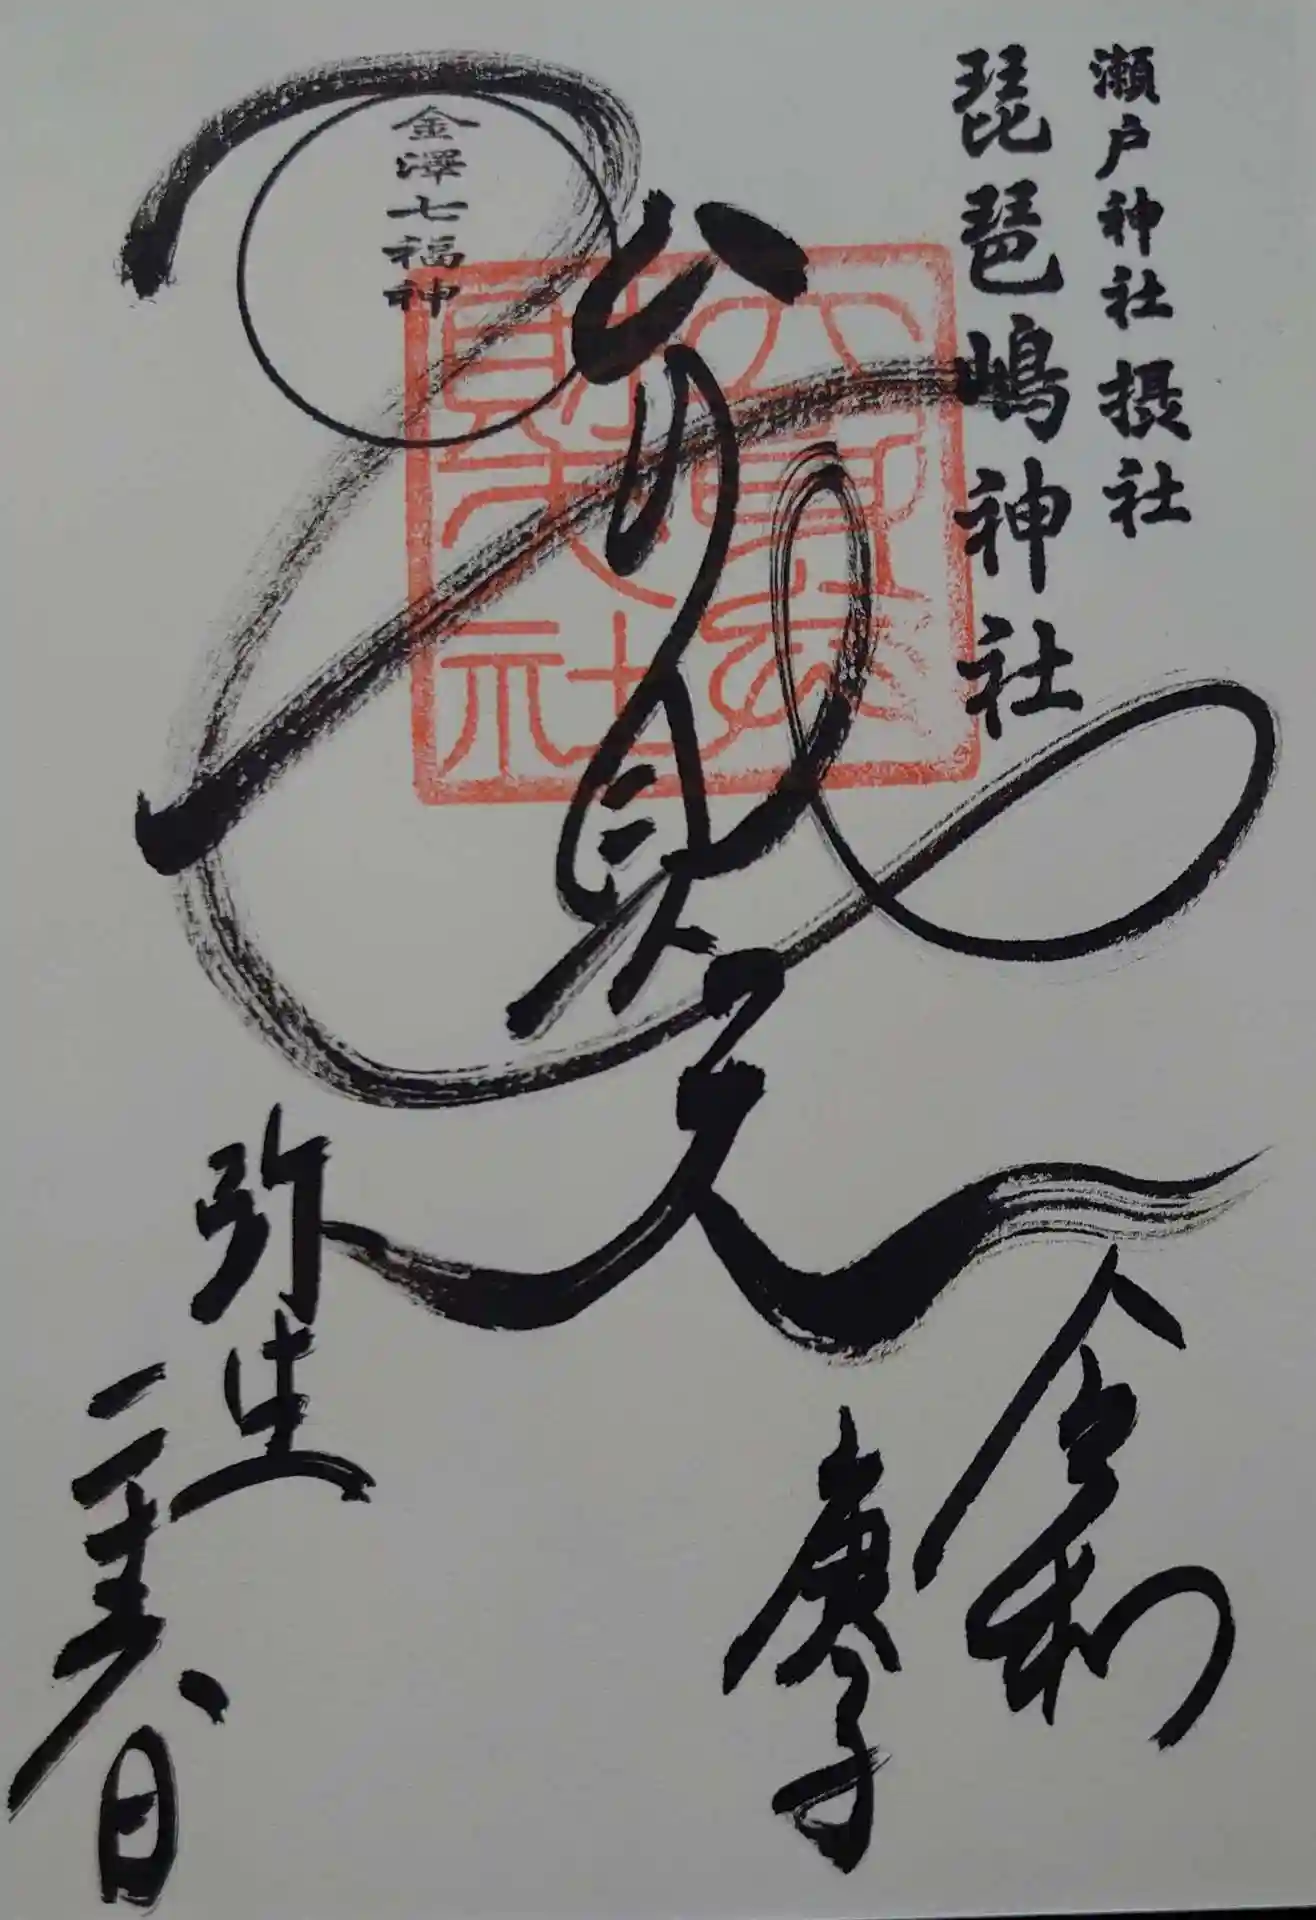 瀬戸神社摂社
琵琶嶋神社
令和
庚子
弁財天
財天社
金澤七福神
弥生
日